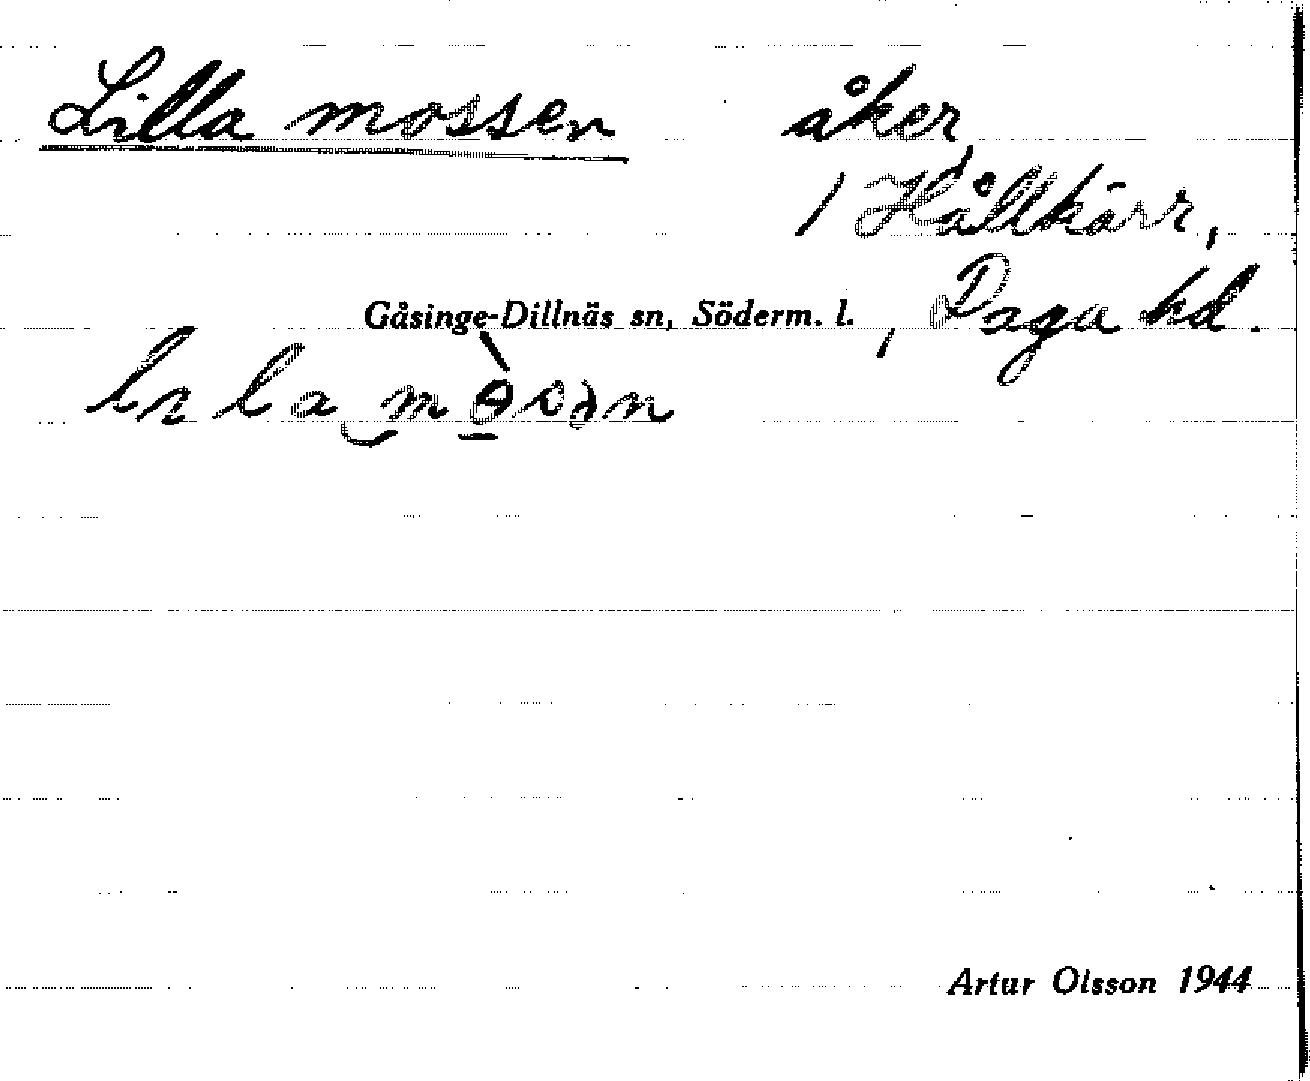 Lilla mossen åker
/ Hållkärr,
Gåsinge-Dillnäs sn, Söderm. l. , Daga hd.
Artur Olsson 1944